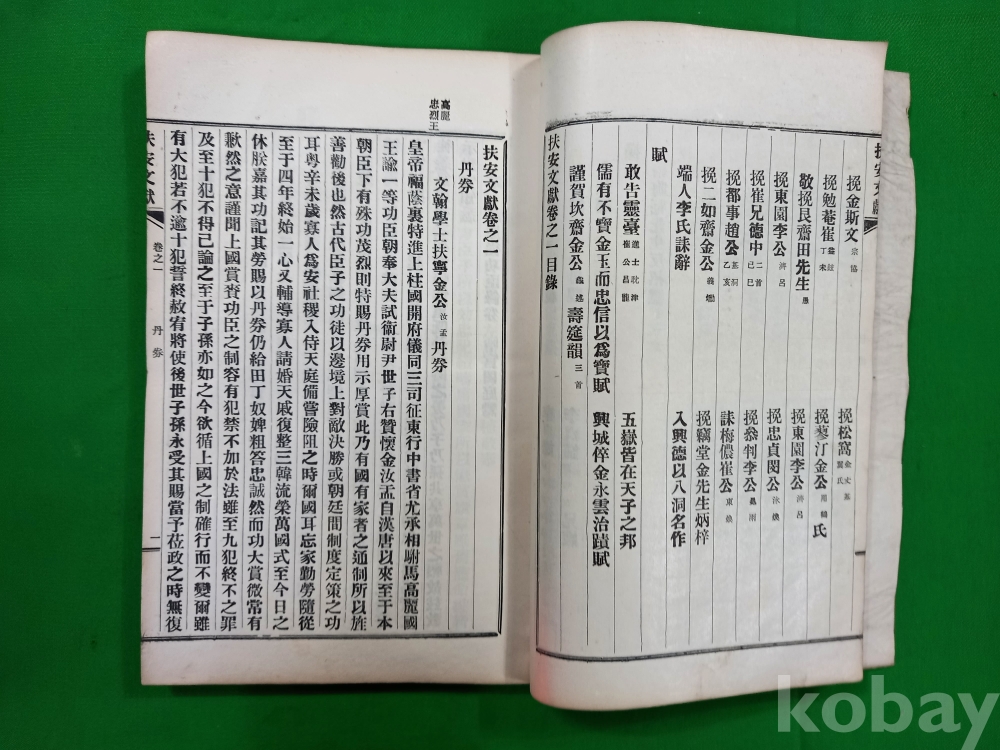 扶安文獻
挽金斯文 宗協 挽松窩 金丈基 鬴氏
挽勉菴崔 益鉉 丁未 挽蓼汀金公 用鶴 氏
敬挽艮齋田先生 愚 挽東園李公 濟呂
挽東園李公 濟呂 挽忠貞閔公 泳煥
挽崔兄德中 二首 己巳 挽叅判李公 鳳雨
挽都事趙公 基弼 乙亥 誄梅儂崔公 東煥
挽二如齋金公 義爀 挽竊堂金先生炳梓
端人李氏誄辭 入興德以八洞名作
賦
敢告靈臺 進士 耽津 崔公昌龍 五嶽皆在天子之邦
儒有不寶金玉而忠信以爲寶賦 興城倅金永雲治蹟賦
謹賀坎齋金公 壽筵韻 三首
扶安文獻卷之一目錄
高麗
忠烈王
扶安文獻卷之一
丹券
文翰學士扶寧金公 汝盂 丹券
皇帝福蔭裏特進上柱國開府儀同三司征東行中書省尤承相駙馬高麗國
王諭一等功臣朝奉大夫試衞尉尹世子右贊懷金汝盂自漢唐以來至于本
朝臣下有殊功茂烈則特賜丹券用示厚賞此乃有國有家者之通制所以旌
善勸後也然古代臣子之功徒以邊境上對敵決勝或朝廷間制度定策之功
耳粤辛未歲寡人爲安社稷入侍天庭備嘗險阻之時爾國耳忘家勤勞隨從
至于四年終始一心又輔導寡人請婚天戚復整三韓流榮萬國式至今日之
休朕嘉其功記其勞賜以丹券仍給田丁奴婢粗答忠誠然而功大賞微常有
歉然之意謹聞上國賞賚功臣之制容有犯禁不加於法雖至九犯終不之罪
及至十犯不得已論之至于子孫亦如之今欲循上國之制確行而不變爾雖
有大犯若不逾十犯誓終赦宥將使後世子孫永受其賜當予莅政之時無復
扶安文獻
卷之一
丹券
一
kobay